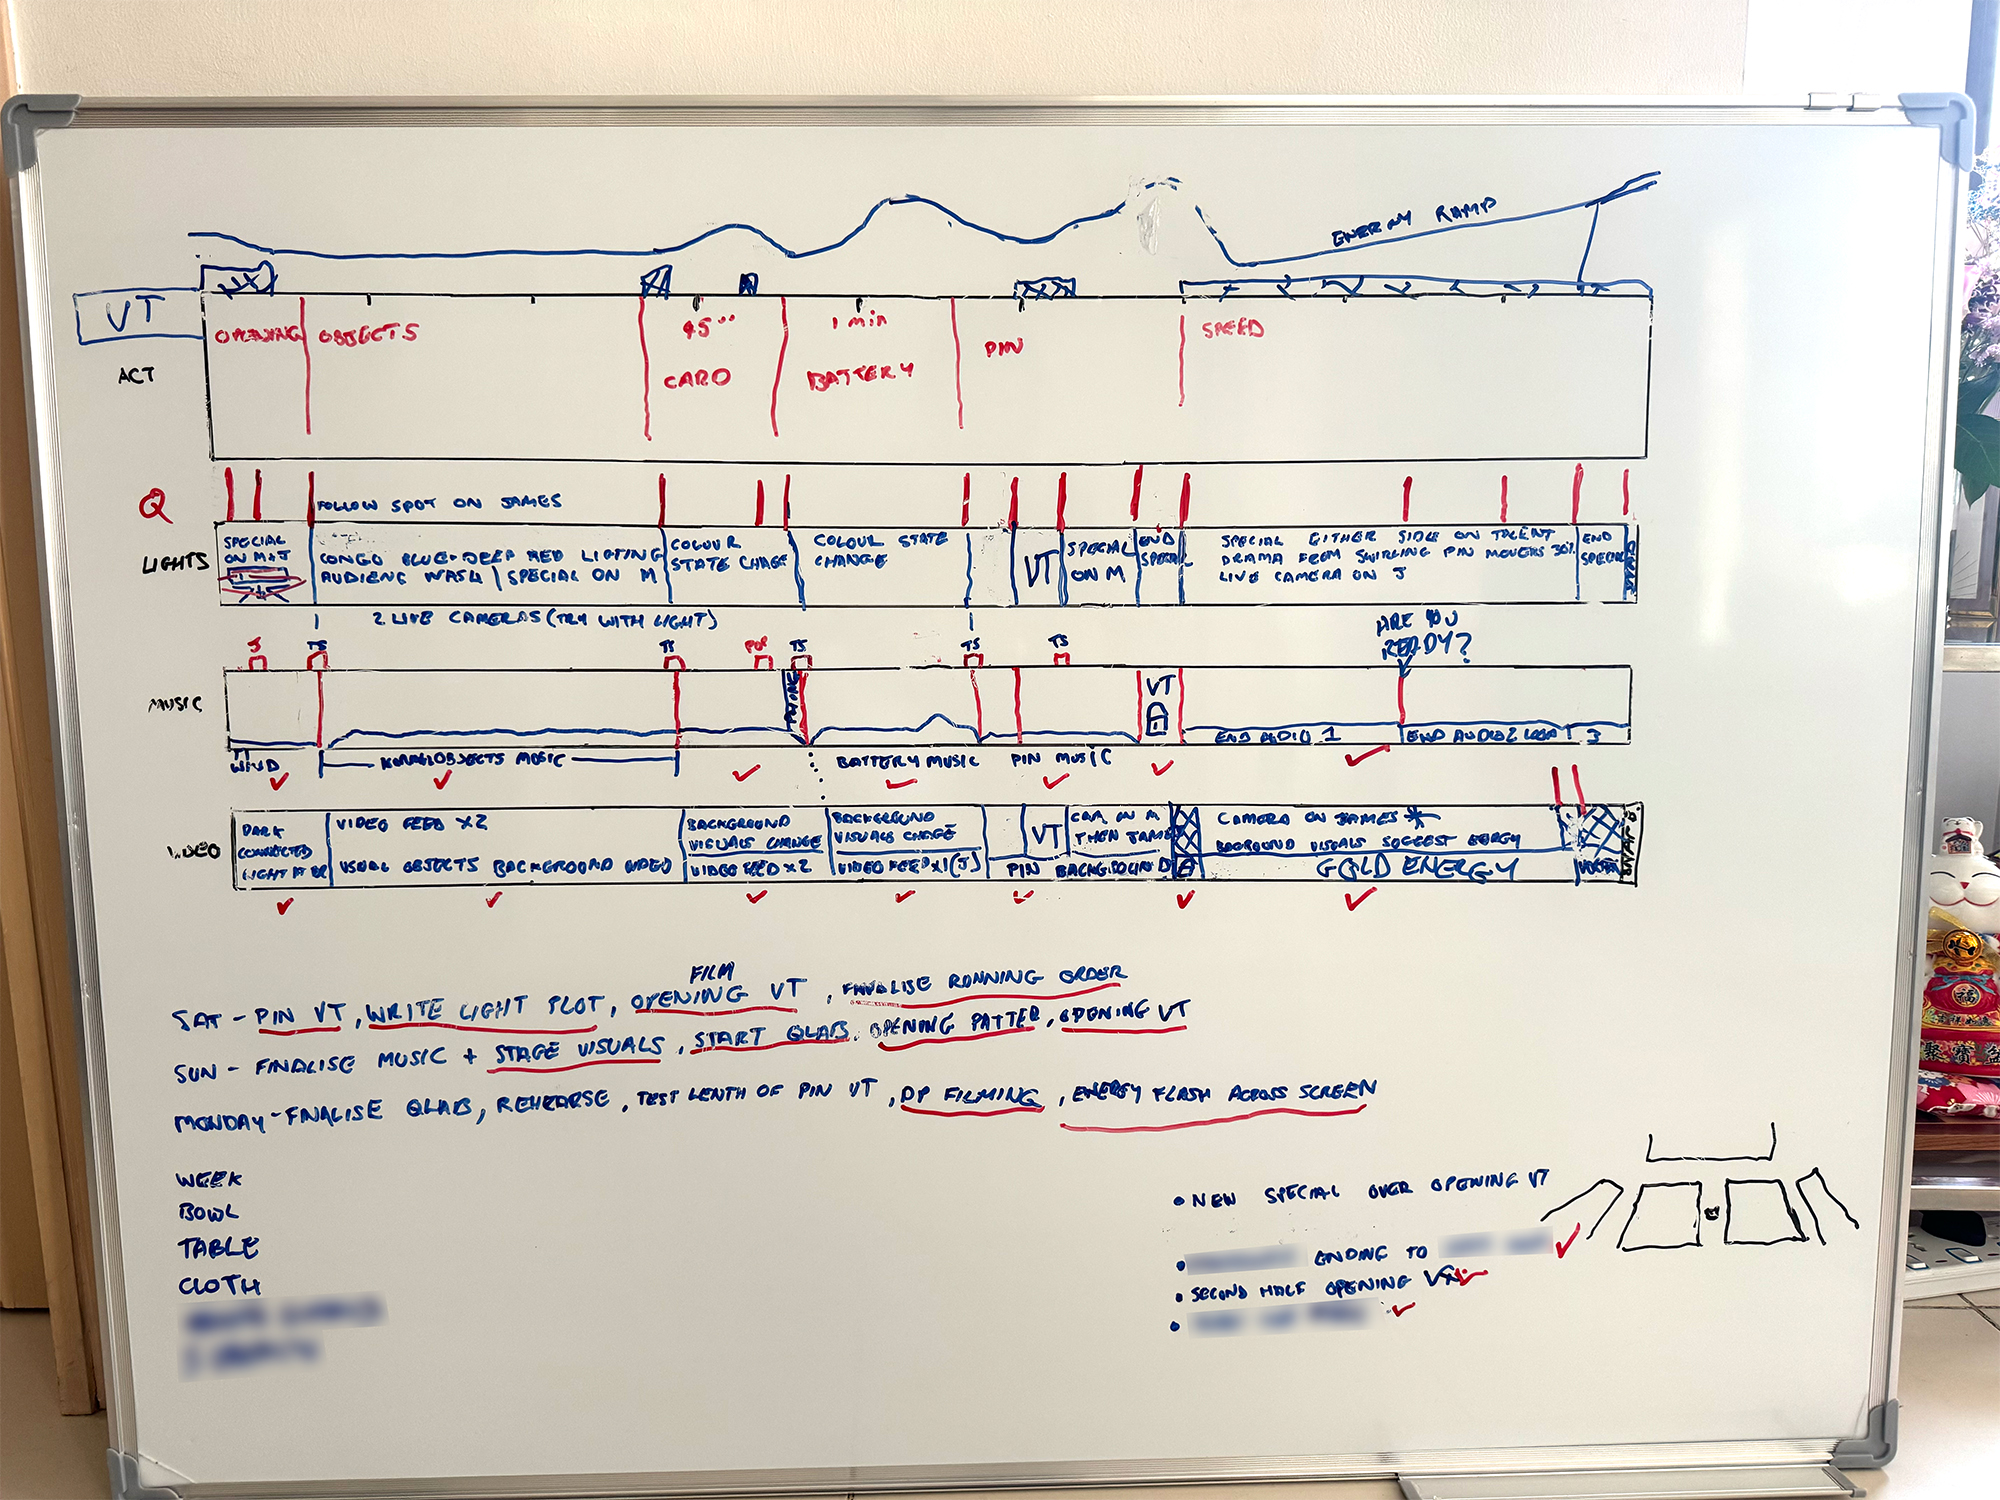 ENERGY RAMP
VT
OPENING OBJECTS 45" 1 min PIN SPEED
CARD BATTERY
ACT
Q FOLLOW SPOT ON JAMES
LIGHTS
SPECIAL ON M+J
CONGO BLUE-DEEP RED LIGTING
AUDIENC WASH / SPECIAL ON M
COLOUR
STATE CHAGE
COLOUR STATE
CHANGE
VT
SPECIAL
ON M
END
SPECIAL
SPECIAL EITHER SIDE ON TALENT
DRAMA FROM SWIRLING PIN MOVERS 30%
LIVE CAMERA ON J
END
SPECIAL
2 LIVE CAMERAS (TRY WITH LIGHT)
ARE YOU
READY?
J TS TS POP TS TS TS
MUSIC
VT
END AUDIO 1 END AUDIO 2 3
WIND OBJECTS MUSIC BATTERY MUSIC PIN MUSIC
VIDEO
DARK
CONNECTED
LIGHT
VIDEO FEED X2
VISUAL OBJECTS BACKGROUND VIDEO
BACKGROUND
VISUALS CHANGE
VIDEO FEED X2
BACKGROUND
VISUALS CHAGE
VIDEO FEED X1 (J)
VT
CAM ON M
THEN JAMES
PIN BACKGROUND
CAMERA ON JAMES *
BACGROUND VISUALS SUGGEST EERGY
GOLD ENERGY
FILM
SAT - PIN VT, WRITE LIGHT PLOT, OPENING VT, FINALISE RONNING ORDER
SUN - FINALISE MUSIC + STAGE VISUALS, START QLAB, OPENING PATTER, OPENING VT
MONDAY - FINALISE QLAB, REHEARSE, TEST LENTH OF PIN VT, DP FILMING, ENERGY FLASH ACROSS SCREEN
WEEK
BOWL
TABLE
CLOTH
• NEW SPECIAL OVER OPENING VT
• ENDING TO
• SECOND HALF OPENING